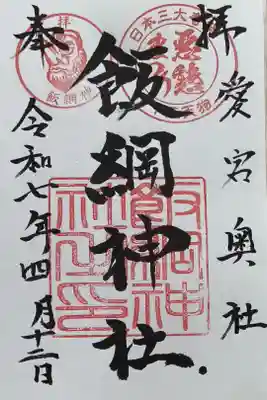 愛宕奥社
拝
日本三大天狗
悪態
まつり
飯綱神社
飯綱神
社之印
拝
飯綱神
奉
令和七年四月十二日